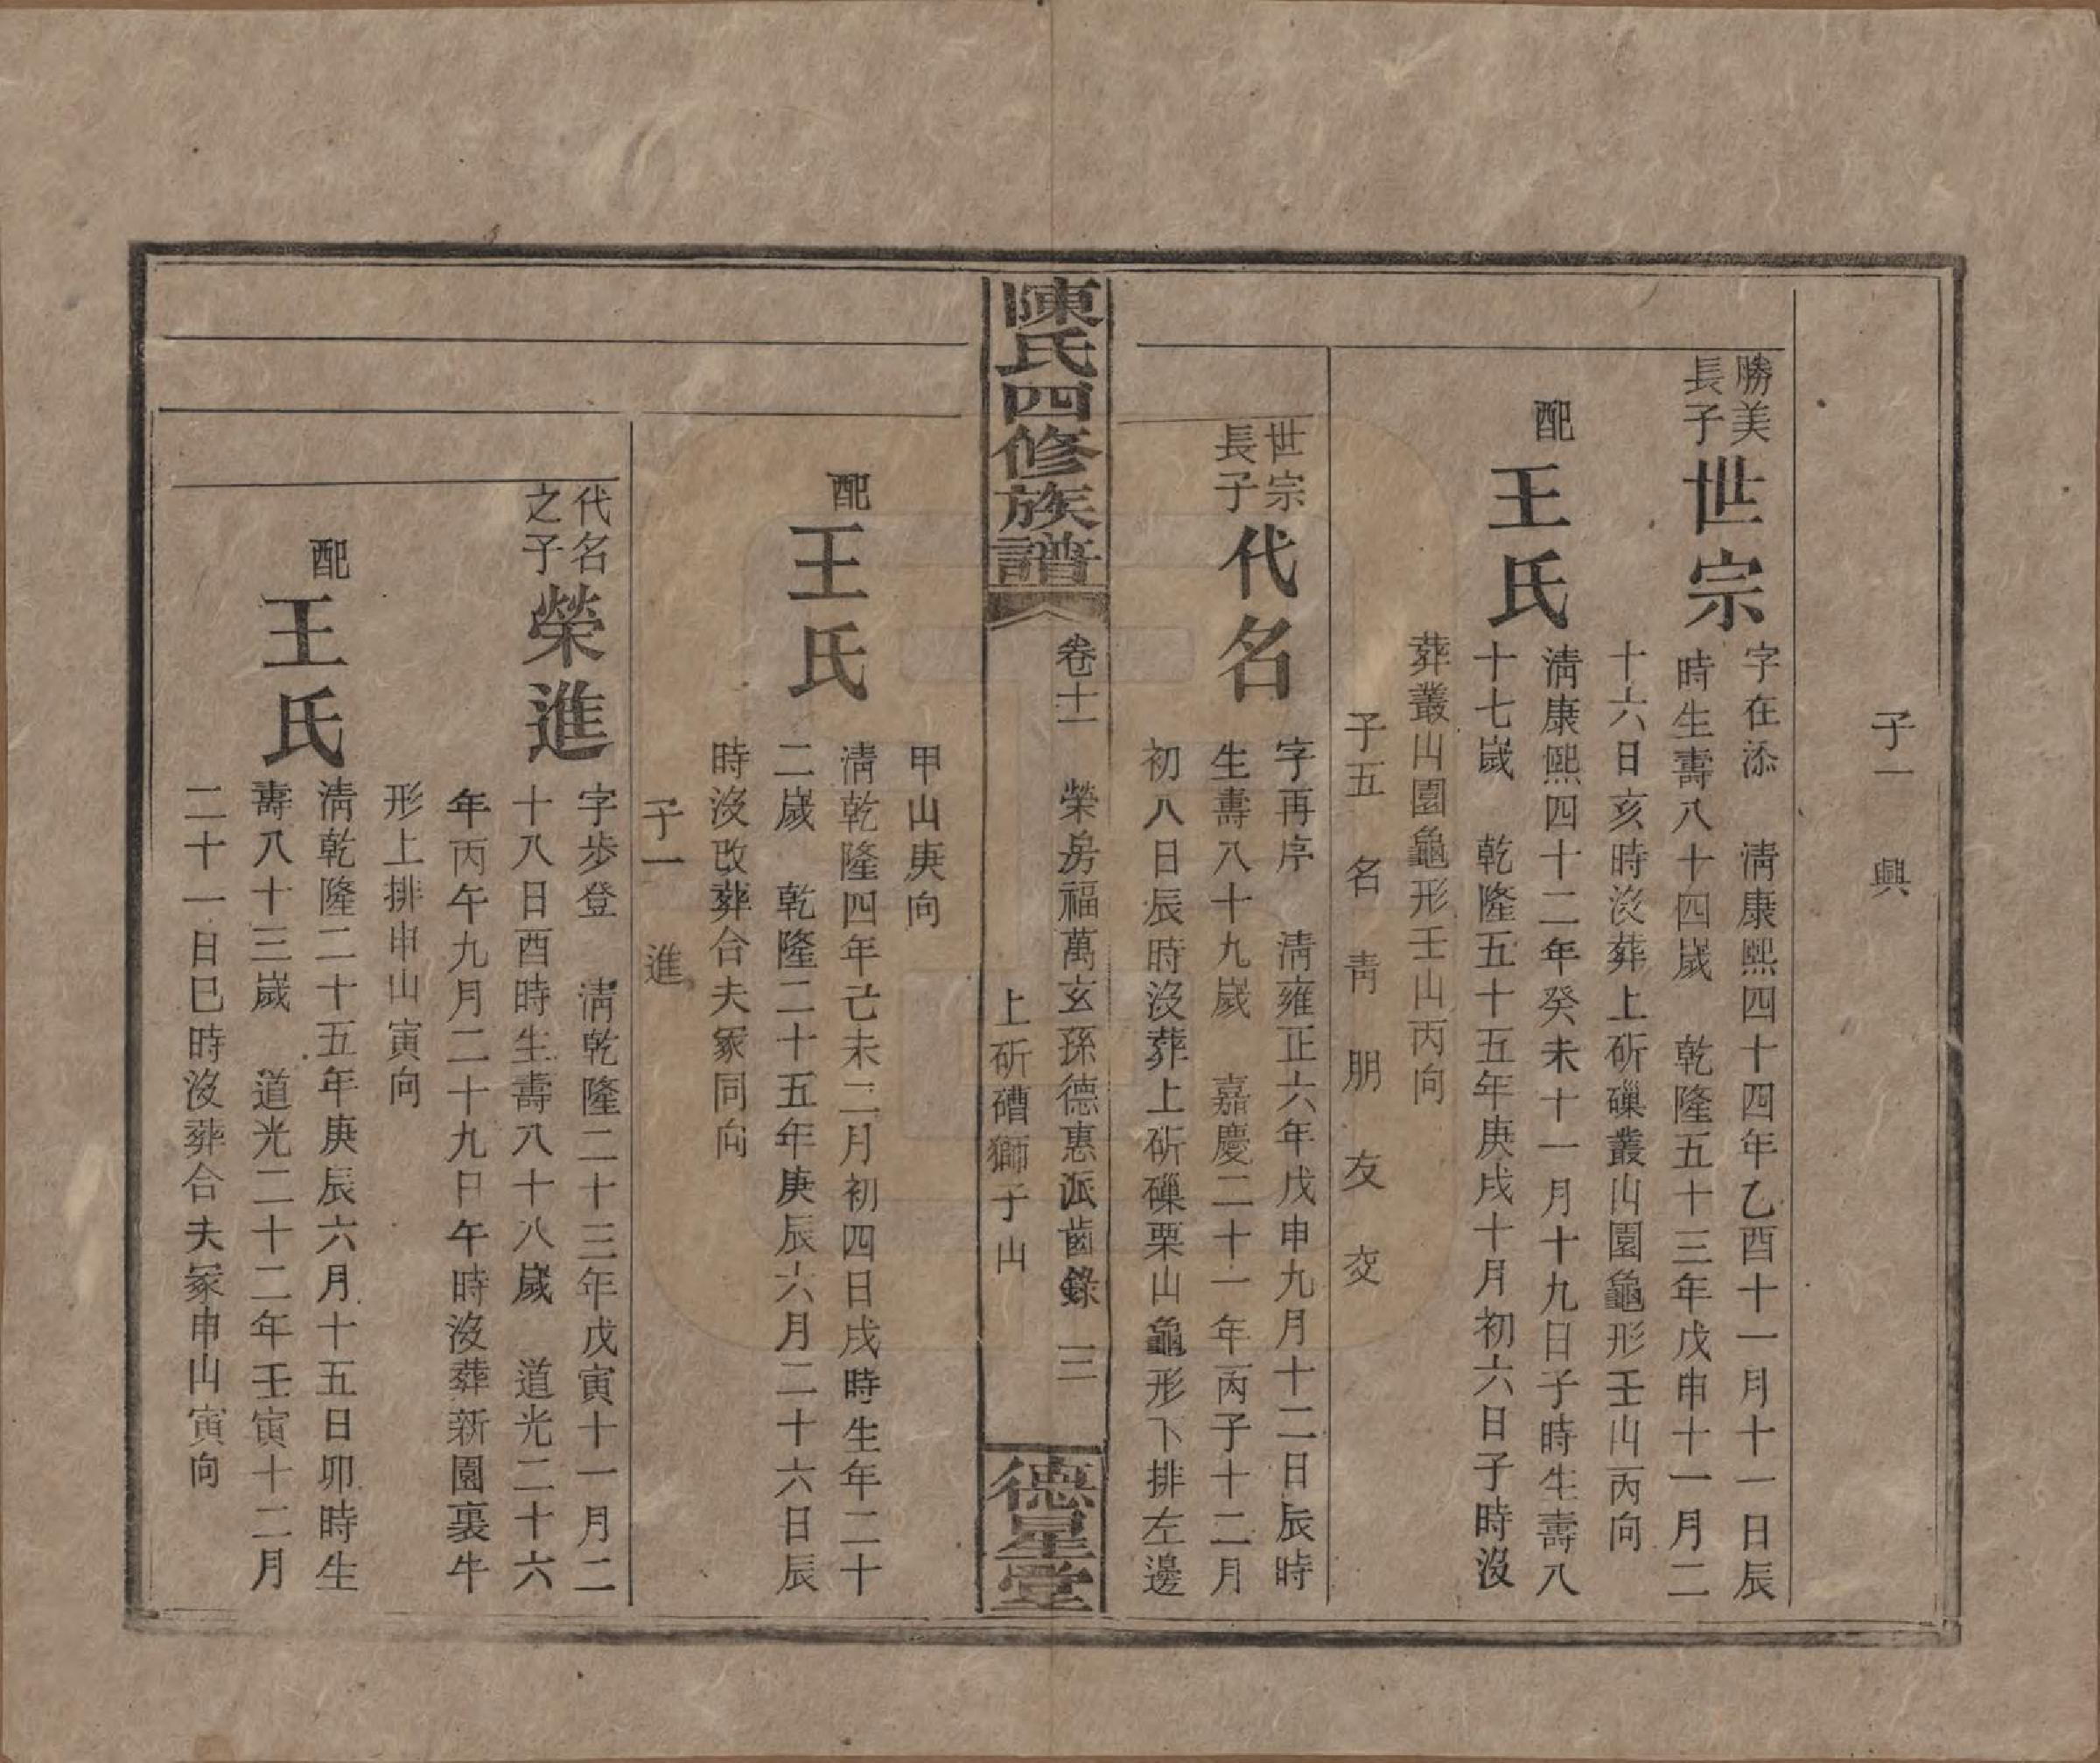 子一　興
勝美
長子
世宗
字在添　淸康熙四十四年乙酉十一月十一日辰
時生壽八十四歲　乾隆五十三年戊申十一月二
十六日亥時沒葬上斫磼叢山園龜形壬山丙向
配
王氏
淸康熙四十二年癸未十一月十九日子時生壽八
十七歲　乾隆五十五年庚戌十月初六日子時沒
葬叢山園龜形壬山丙向
子五　名　靑　朋　友　交
世宗
長子
代名
字再序　淸雍正六年戊申九月十二日辰時
生壽八十九歲　嘉慶二十一年丙子十二月
初八日辰時沒葬上斫磼栗山龜形下排左邊
陳氏四修族譜
卷十一　榮房福萬玄孫德惠派齒錄　三
上斫磼獅子山
德星堂
甲山庚向
配
王氏
淸乾隆四年己未二月初四日戌時生年二十
二歲　乾隆二十五年庚辰六月二十六日辰
時沒改葬合夫冢同向
子一　進
代名
之子
榮進
字步登　淸乾隆二十三年戊寅十一月二
十八日酉時生壽八十八歲　道光二十六
年丙午九月二十九日午時沒葬新園裏牛
形上排申山寅向
配
王氏
淸乾隆二十五年庚辰六月十五日卯時生
壽八十三歲　道光二十二年壬寅十二月
二十一日巳時沒葬合夫冢申山寅向